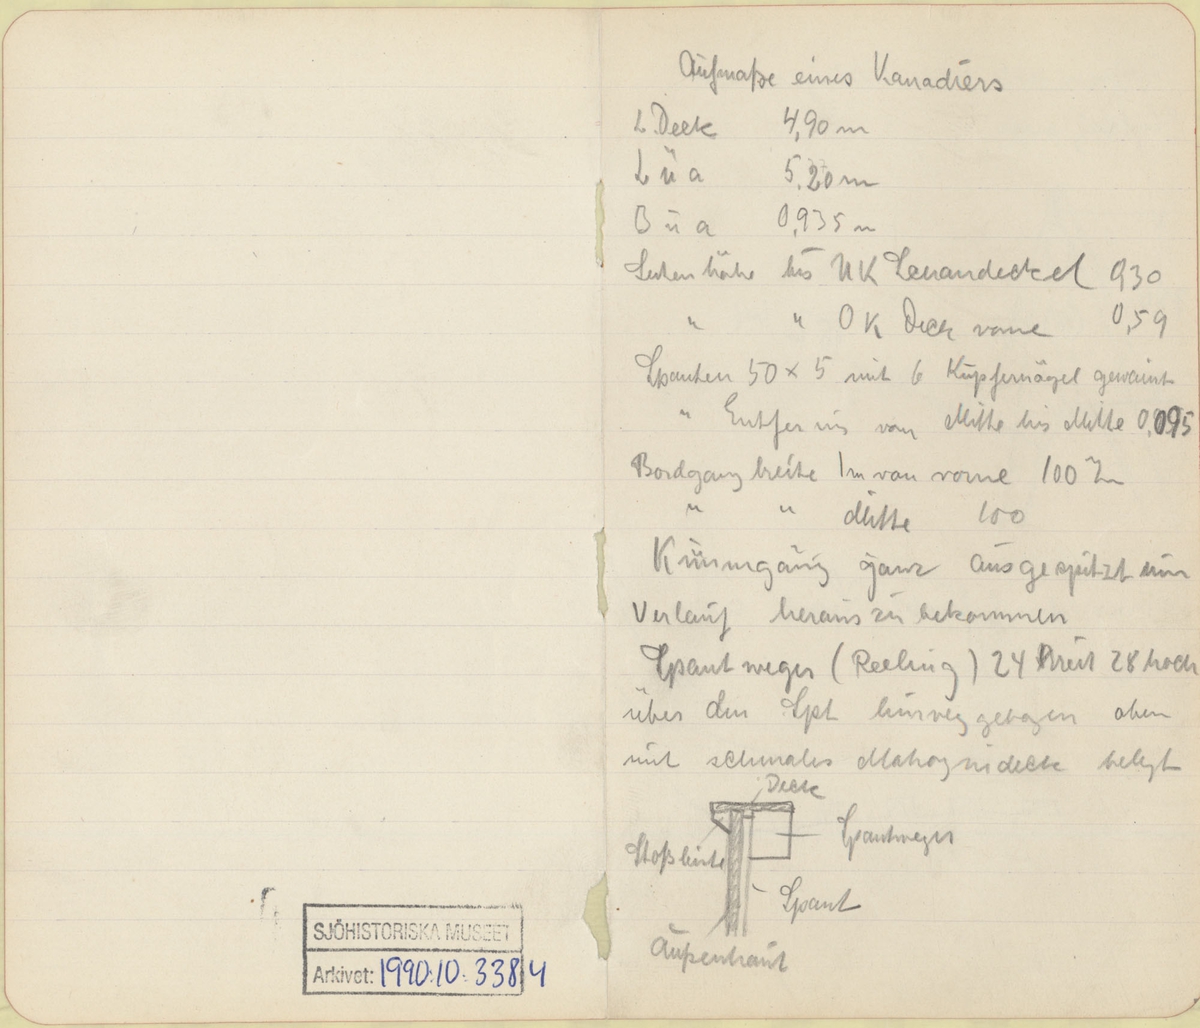 SJÖHISTORISKA MUSEET
Arkivet: 1990:10:338:4
Aufmaße eines Kanadiers
L Deck 4,90 m
L ü a 5,20 m
B ü a 0,935 m
Seitenhöhe bis UK 930
" " OK Deck vorne 0,59
Spanten 50 x 5 mit 6 Kupfernägel
" Entfernis von Mitte bis Mitte 0,095
Bordgang breite 1m von vorne 100
" " Mitte 100
Kimmgang ganz ausgespitzt um
Verlauf heraus zu bekommen
Spantweger (Reeling) 24 breit 28 hoch
über den Spt hinweggezogen oben
mit schmales Mahagnideck belegt
Deck
Spantweger
Stoßleiste
Spant
Außenhaut